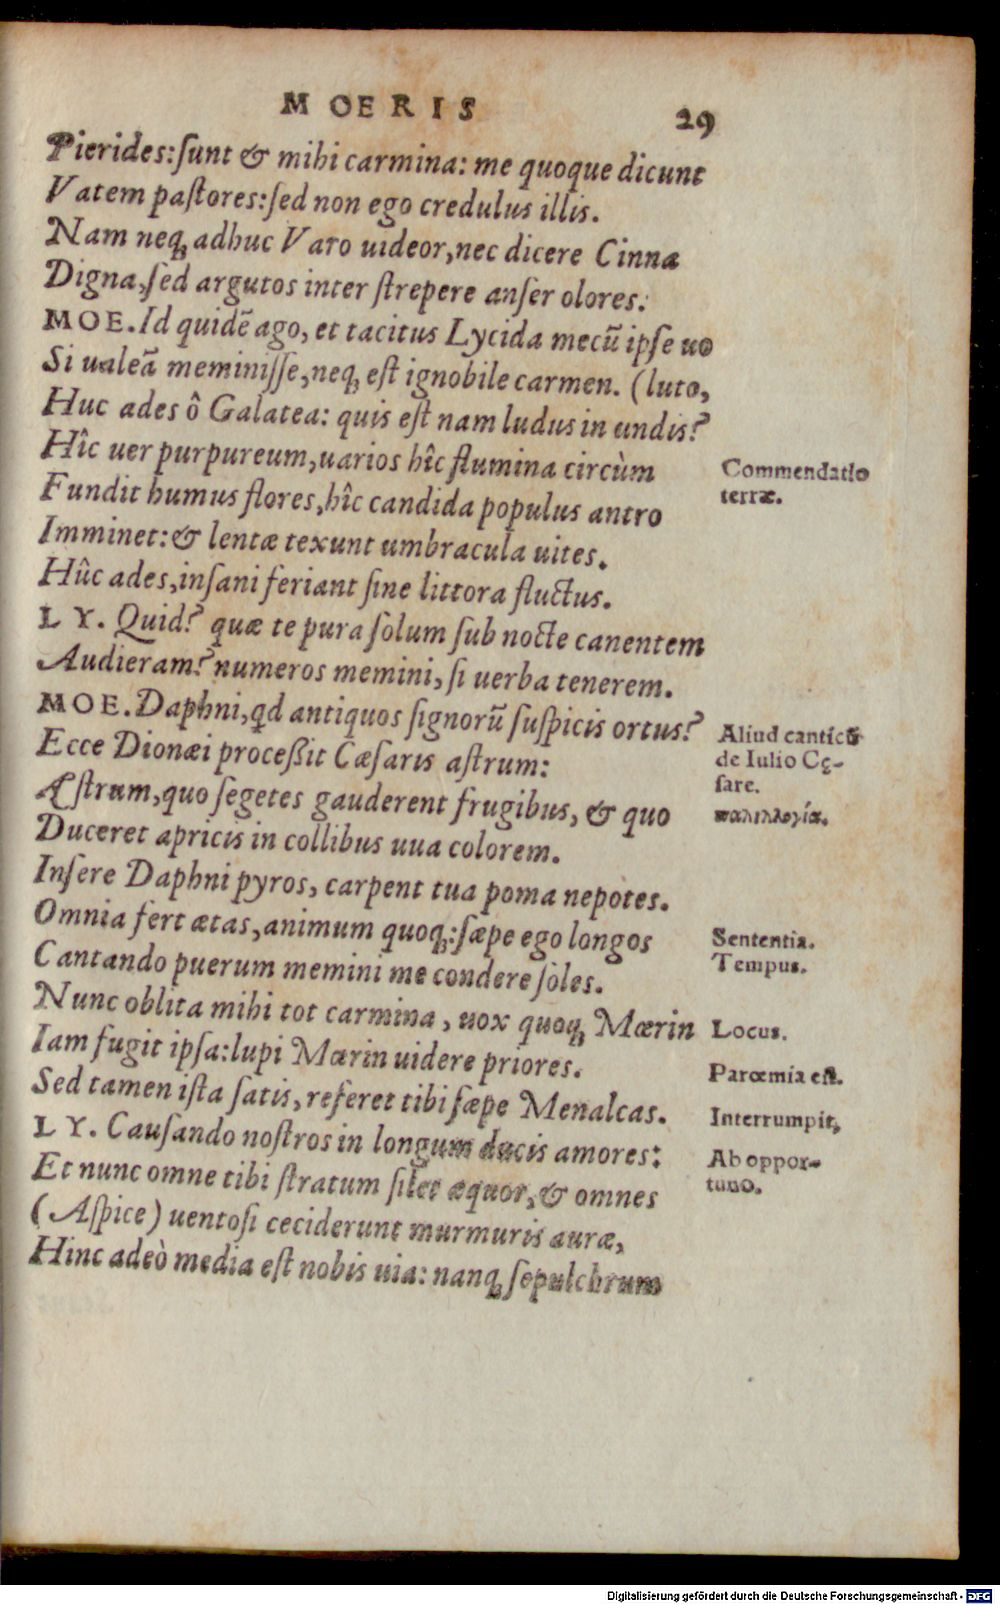 MOERIS 29
Pierides:ſunt & mihi carmina: me quoque dicunt
Vatem paſtores:ſed non ego credulus illis.
Nam neqꝫ adhuc Varo uideor,nec dicere Cinna
Digna,ſed argutos inter ſtrepere anſer olores.
MOE.Id quidē ago, et tacitus Lycida mecū ipſe uo
Si ualeā meminiſſe,neqꝫ eſt ignobile carmen. (luto,
Huc ades ô Galatea: quis eſt nam ludus in undis?
Hîc uer purpureum,uarios hîc flumina circùm
Commendatio
Fundit humus flores,hîc candida populus antro
terræ.
Imminet:& lentæ texunt umbracula uites.
Hûc ades,inſani feriant ſine littora fluctus.
LY. Quid? quæ te pura ſolum ſub nocte canentem
Audieram? numeros memini, ſi uerba tenerem.
MOE.Daphni,qd antiquos ſignorū ſuſpicis ortus?
Aliud canticū
Ecce Dionæi proceßit Cæſaris aſtrum:
de Iulio Cę-
ſare.
Æſtrum,quo ſegetes gauderent frugibus, & quo
παλιλλογία.
Duceret apricis in collibus uua colorem.
Inſere Daphni pyros, carpent tua poma nepotes.
Omnia fert ætas,animum quoqꝫ:ſæpe ego longos
Sententia.
Cantando puerum memini me condere ſoles.
Tempus.
Nunc oblita mihi tot carmina, uox quoqꝫ Mœrin
Locus.
Iam fugit ipſa:lupi Mœrin uidere priores.
Parœmia eſt.
Sed tamen iſta ſatis,referet tibi ſæpe Menalcas.
Interrumpit,
LY. Cauſando noſtros in longum ducis amores:
Ab oppor-
Et nunc omne tibi ſtratum ſilet æquor,& omnes
tuno.
(Aſpice) uentoſi ceciderunt murmuris auræ,
Hinc adeò media eſt nobis uia: nanqꝫ ſepulchrum
Digitalisierung gefördert durch die Deutsche Forschungsgemeinschaft - DFG